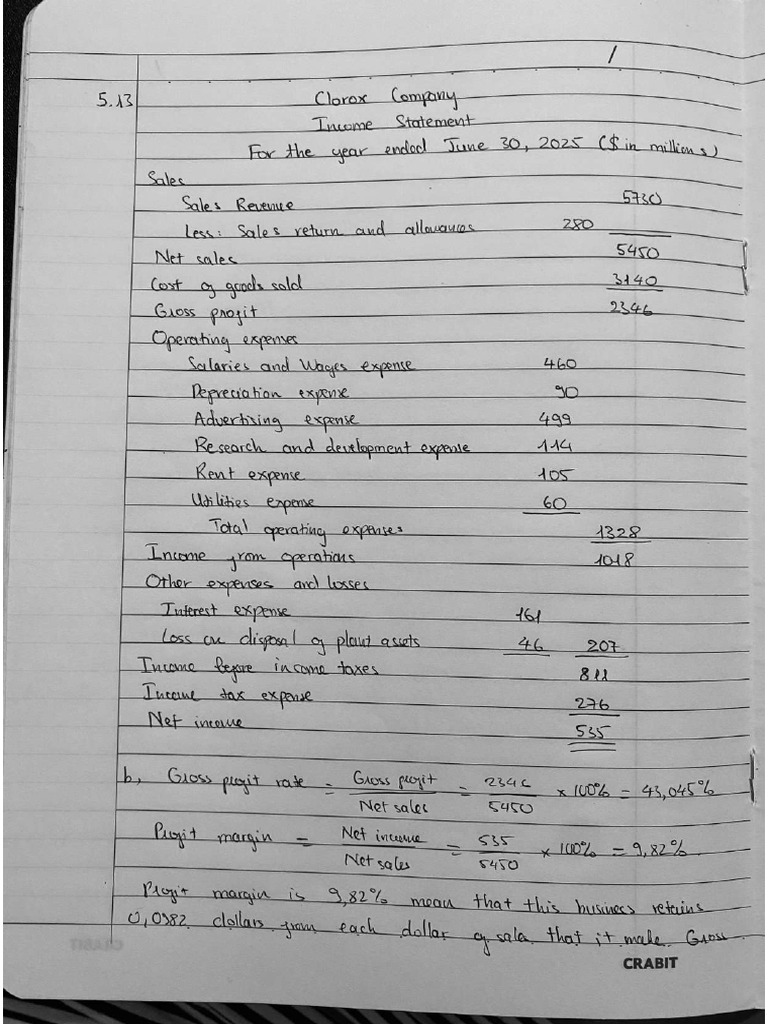 /
5.13 Clorox Company
Income Statement
For the year ended June 30, 2025 ($ in millions)
Sales
Sales Revenue 5730
Less: Sales return and allowances 280
Net sales 5450
Cost of goods sold 3140
Gross profit 2346
Operating expenses
Salaries and Wages expense 460
Depreciation expense 90
Advertising expense 499
Research and development expense 114
Rent expense 105
Utilities expense 60
Total operating expenses 1328
Income from operations 1018
Other expenses and losses
Interest expense 161
Loss on disposal of plant assets 46 207
Income before income taxes 811
Income tax expense 276
Net income 535
b, Gross profit rate = Gross profit / Net sales = 2346 / 5450 × 100% = 43,045%
Profit margin = Net income / Net sales = 535 / 5450 × 100% = 9,82%
Profit margin is 9,82% mean that this business retains
0,0982 dollars from each dollar of sales that it make. Gross
CRABIT